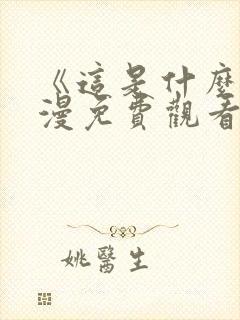 《這是什麼
漫免費觀看
姚醫生